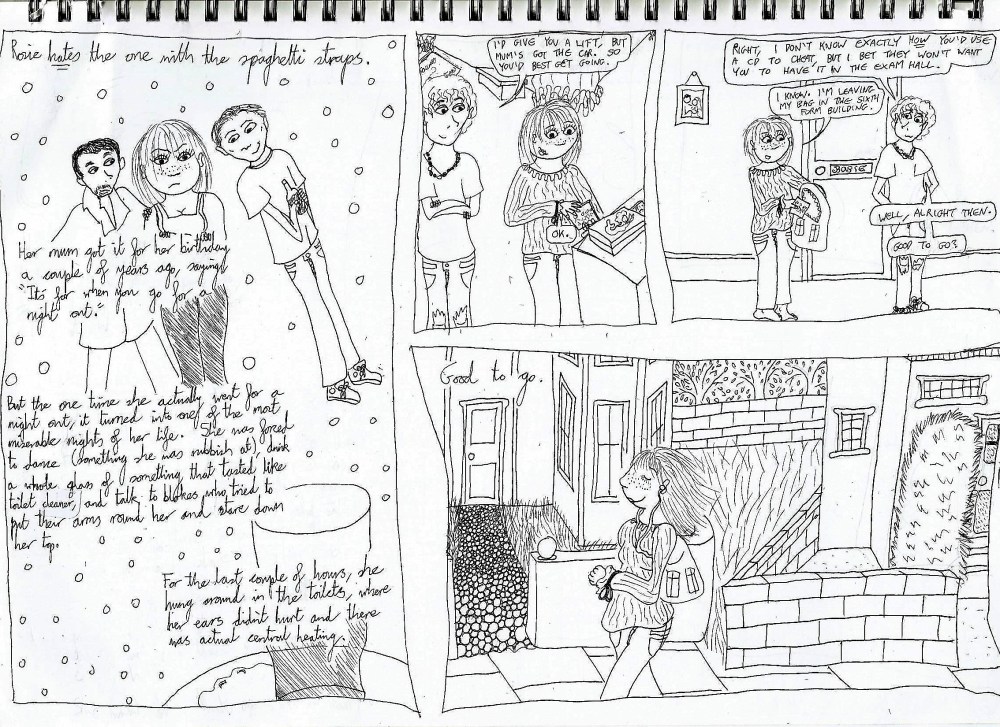 Rosie hates the one with the spaghetti straps.
Her mum got it for her birthday
a couple of years ago, saying
"It's for when you go for a
night out."
But the one time she actually went for a
night out, it turned into one of the most
miserable nights of her life. She was forced
to dance (something she was rubbish at), drink
a whole glass of something that tasted like
toilet cleaner, and talk to blokes who tried to
put their arms round her and stare down
her top.
For the last couple of hours, she
hung around in the toilets, where
her ears didn't hurt and there
was actual central heating.
I'D GIVE YOU A LIFT, BUT
MUM'S GOT THE CAR. SO
YOU'D BEST GET GOING.
OK.
RIGHT, I DON'T KNOW EXACTLY HOW YOU'D USE
A CD TO CHEAT, BUT I BET THEY WON'T WANT
YOU TO HAVE IT IN THE EXAM HALL.
I KNOW. I'M LEAVING
MY BAG IN THE SIXTH
FORM BUILDING.
WELL, ALRIGHT THEN.
GOOD TO GO?
Good to go.